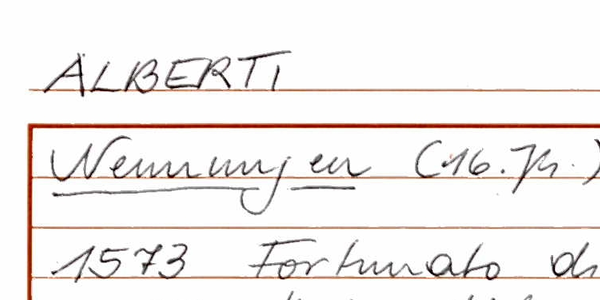 ALBERTI
Nennungen (16. Jh.)
1573 Fortunato di